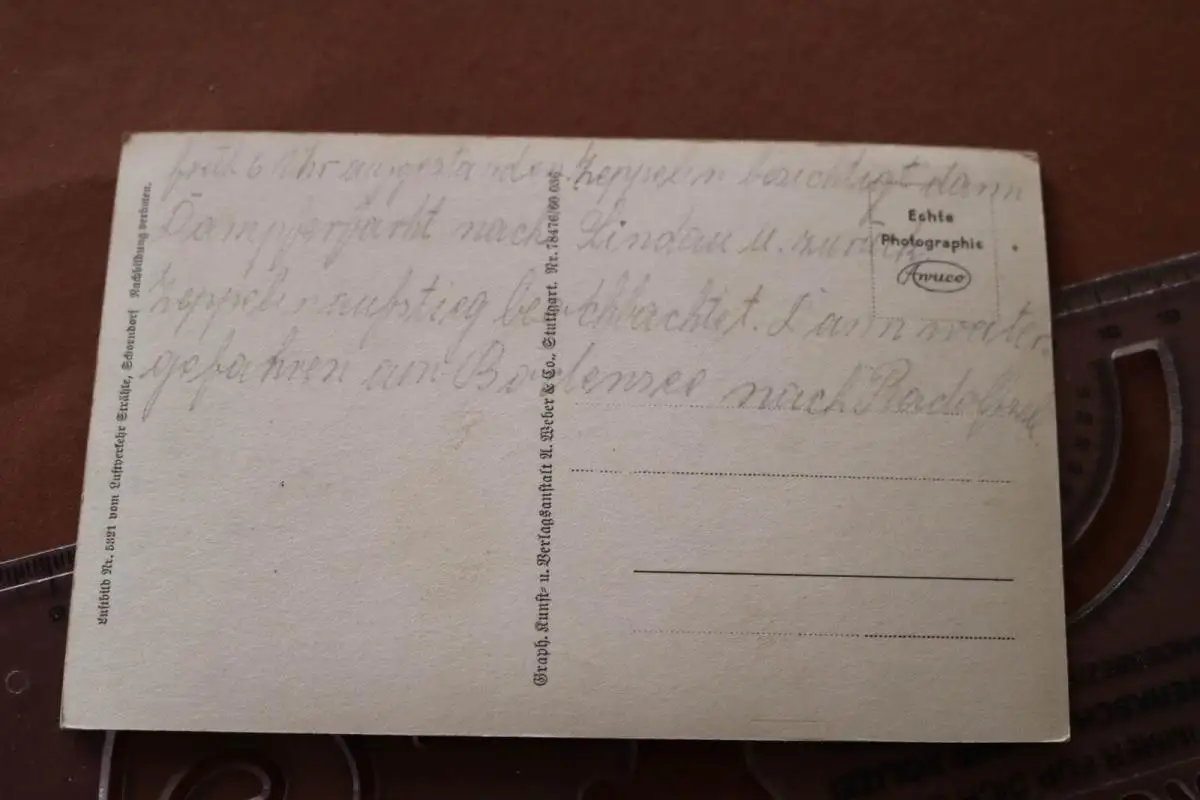 früh 6 Uhr augestanden. Zeppelin besichtigt dann
Dampferfahrt nach Lindau u. zurück
Zeppelinaufstieg beobachtet. Dann weiter
gefahren am Bodensee nach Radolfzell.
Luftbild Nr. 5321 vom Luftverkehr Strähle, Schorndorf Nachbildung verboten.
Graph. Kunst- u. Verlagsanstalt A. Weber & Co., Stuttgart. Nr. 78476/60 030
Echte
Photographie